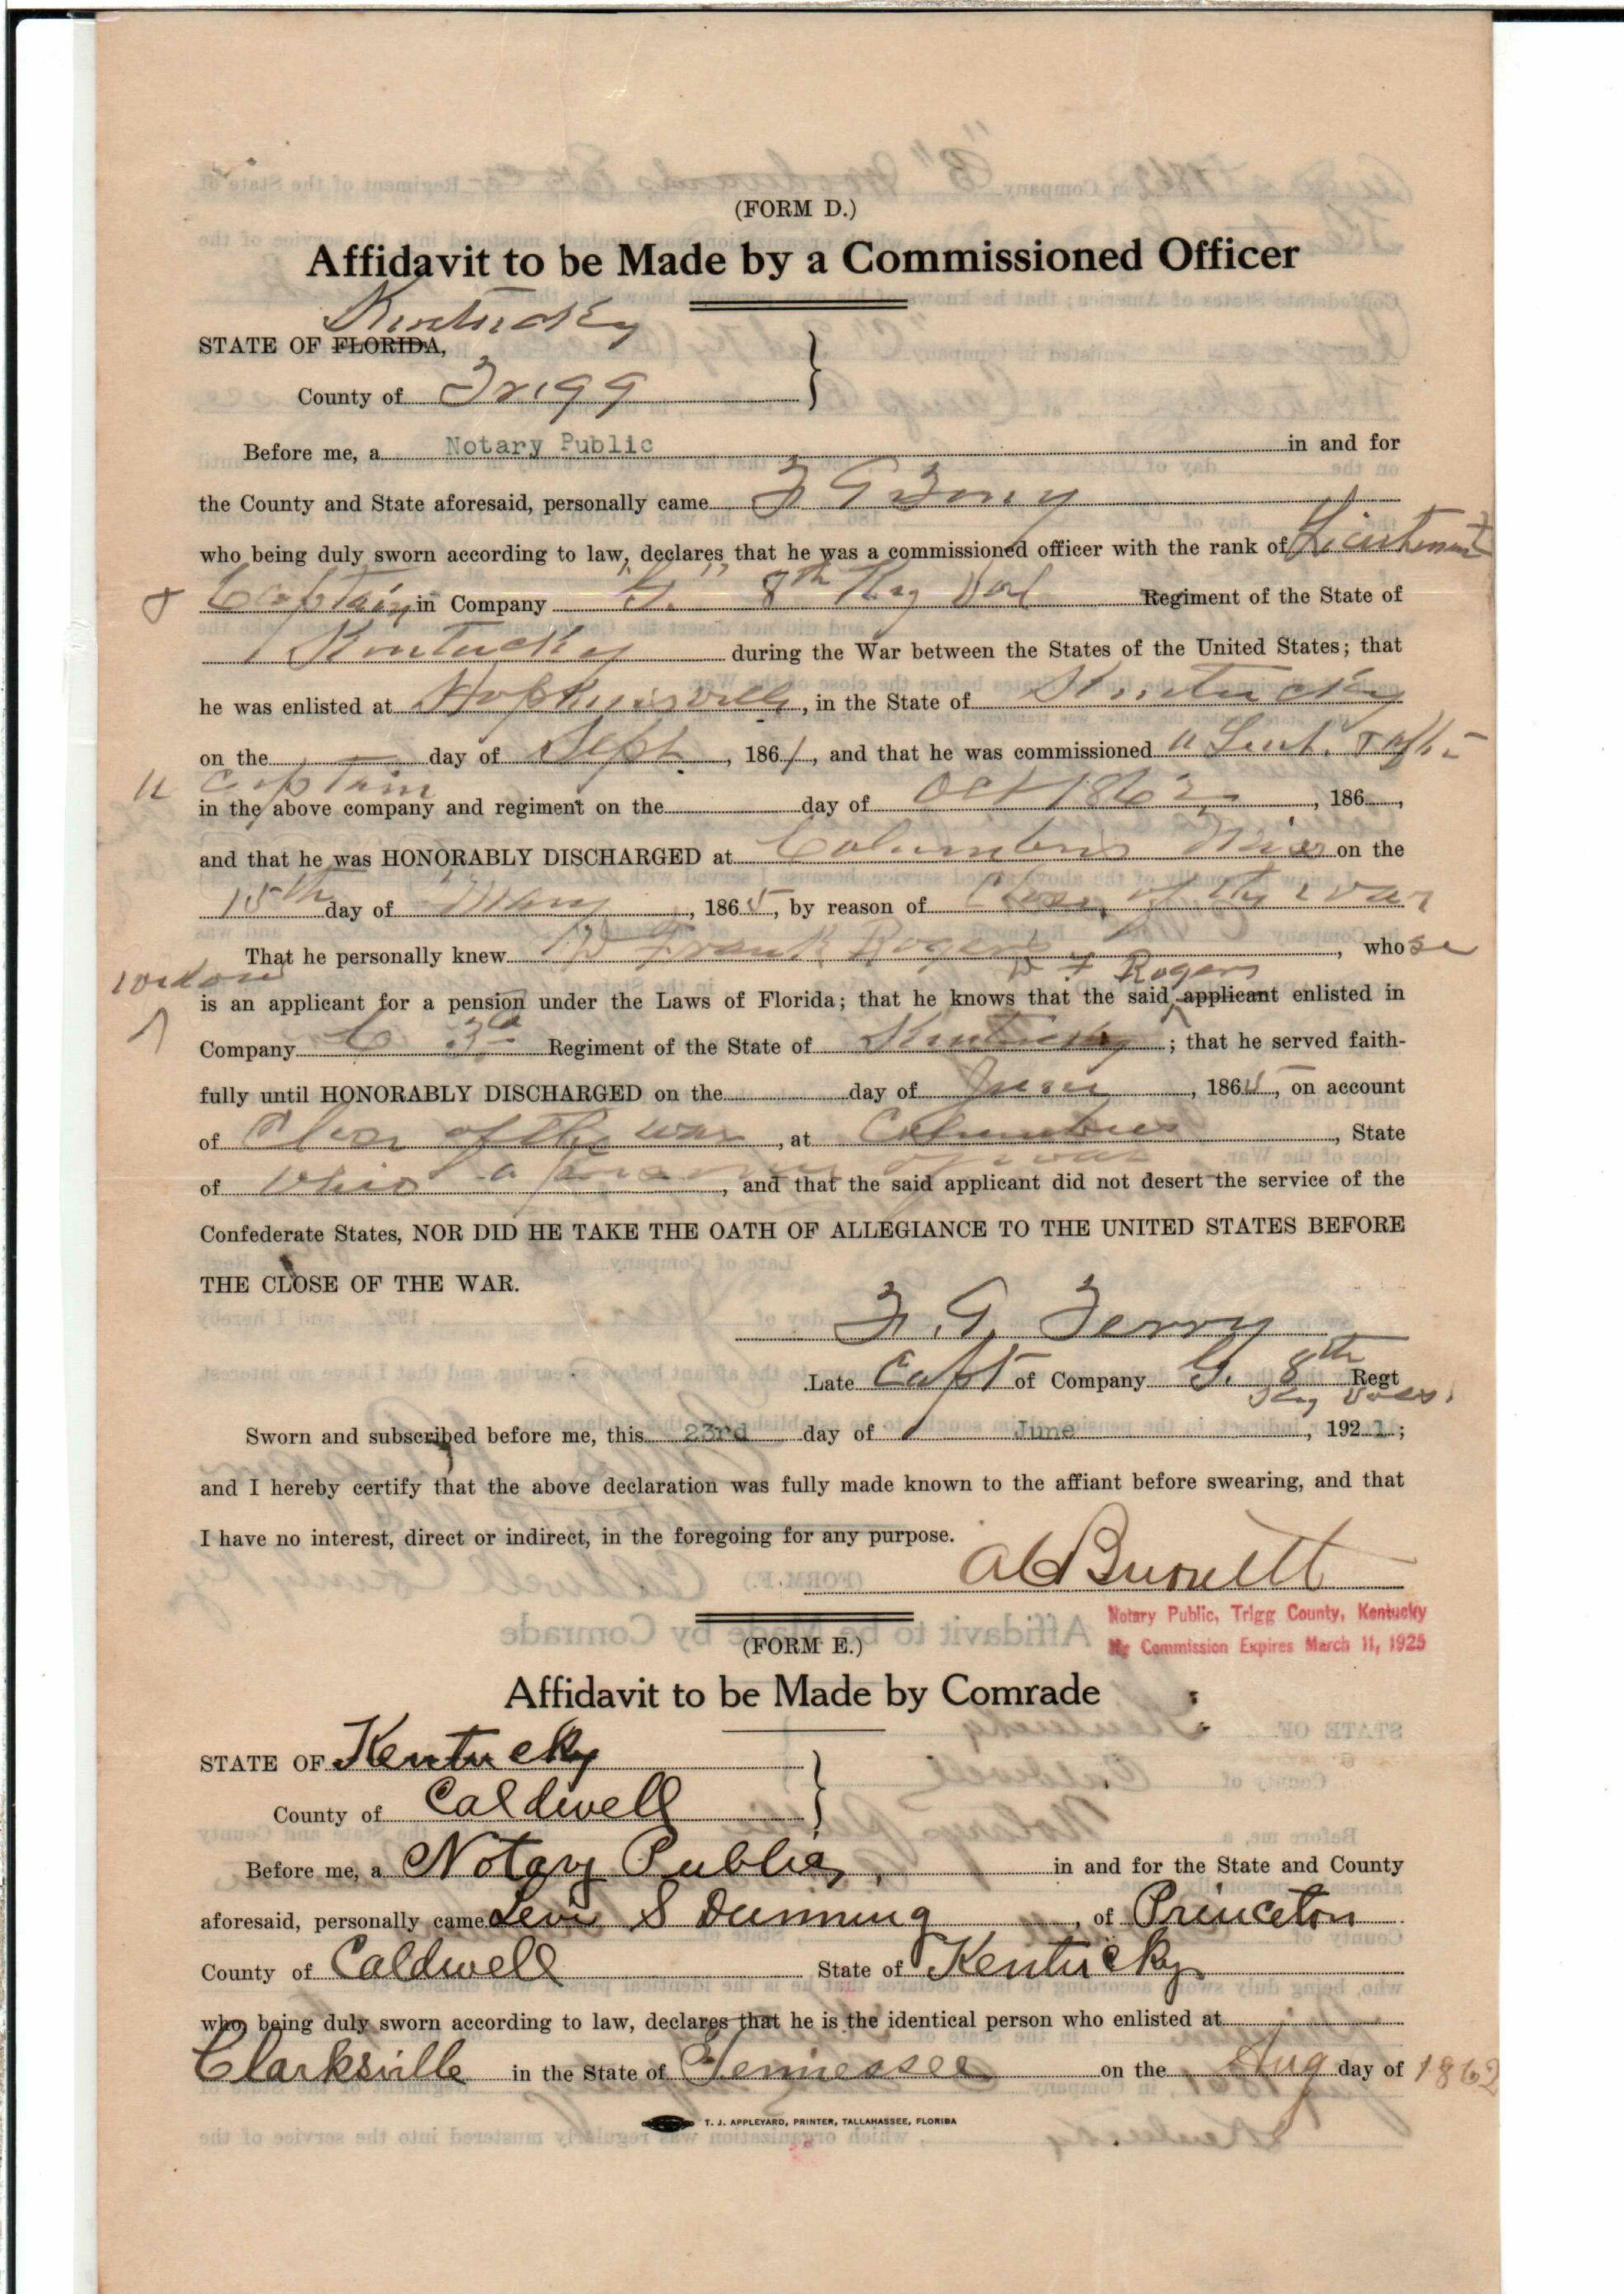 (FORM D.)
Affidavit to be Made by a Commissioned Officer
Kentucky
STATE OF FLORIDA,
County of Trigg
Before me, a Notary Public in and for
the County and State aforesaid, personally came F G Terry
who being duly sworn according to law, declares that he was a commissioned officer with the rank of Lieutenant
& Captain in Company "G." 8th Ky Vol Regiment of the State of
Kentucky during the War between the States of the United States; that
he was enlisted at Hopkinsville, in the State of Kentucky
on the day of Sept., 1861, and that he was commissioned a Lieut. &
a Captain
in the above company and regiment on the day of Oct 1862, 186 ,
and that he was HONORABLY DISCHARGED at Columbus Miss on the
15th day of May, 1865, by reason of Close of the war
That he personally knew W Frank Rogers, whose
widow W F Rogers
is an applicant for a pension under the Laws of Florida; that he knows that the said applicant enlisted in
Company C 3rd Regiment of the State of Kentucky; that he served faith-
fully until HONORABLY DISCHARGED on the day of June, 1865, on account
of Close of the war, at Columbus, State
of Ohio a prisoner of war, and that the said applicant did not desert the service of the
Confederate States, NOR DID HE TAKE THE OATH OF ALLEGIANCE TO THE UNITED STATES BEFORE
THE CLOSE OF THE WAR.
F. G. Terry
Late Capt of Company G. 8th Regt
Ky Vols.
Sworn and subscribed before me, this 23rd day of June, 1921;
and I hereby certify that the above declaration was fully made known to the affiant before swearing, and that
I have no interest, direct or indirect, in the foregoing for any purpose.
A C Burnett
Notary Public, Trigg County, Kentucky
My Commission Expires March 11, 1925
(FORM E.)
Affidavit to be Made by Comrade
STATE OF Kentucky
County of Caldwell
Before me, a Notary Public, in and for the State and County
aforesaid, personally came Levi S Dunning, of Princeton
County of Caldwell State of Kentucky
who, being duly sworn according to law, declares that he is the identical person who enlisted at
Clarksville in the State of Tennessee on the Aug day of 1862
T. J. APPLEYARD, PRINTER, TALLAHASSEE, FLORIDA